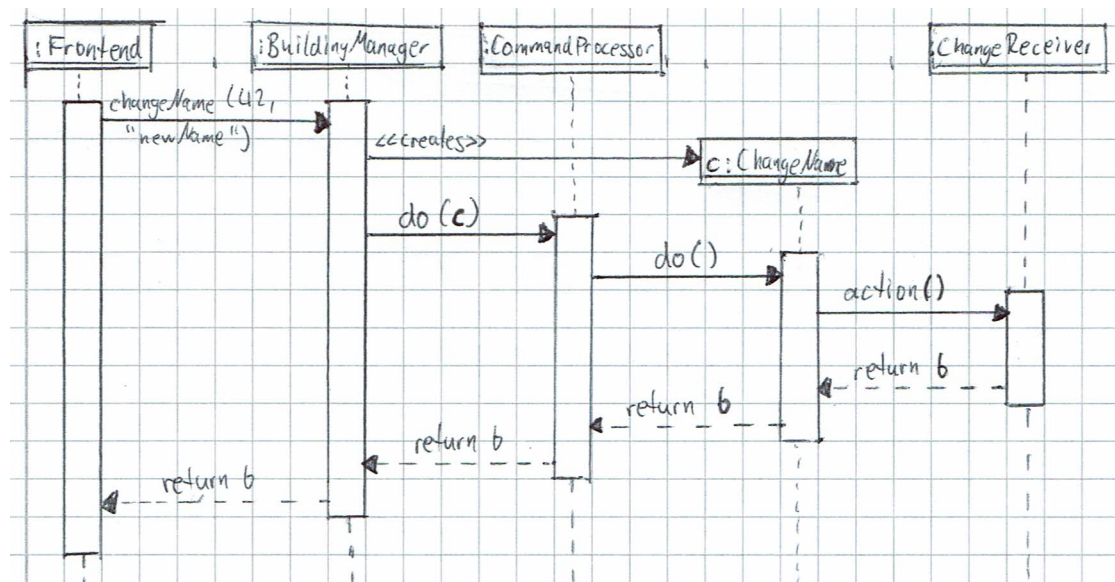 :Frontend
:BuildingManager
:CommandProcessor
:ChangeReceiver
changeName (42,
"newName")
<<creates>>
c:ChangeName
do (c)
do()
action()
return b
return b
return b
return b